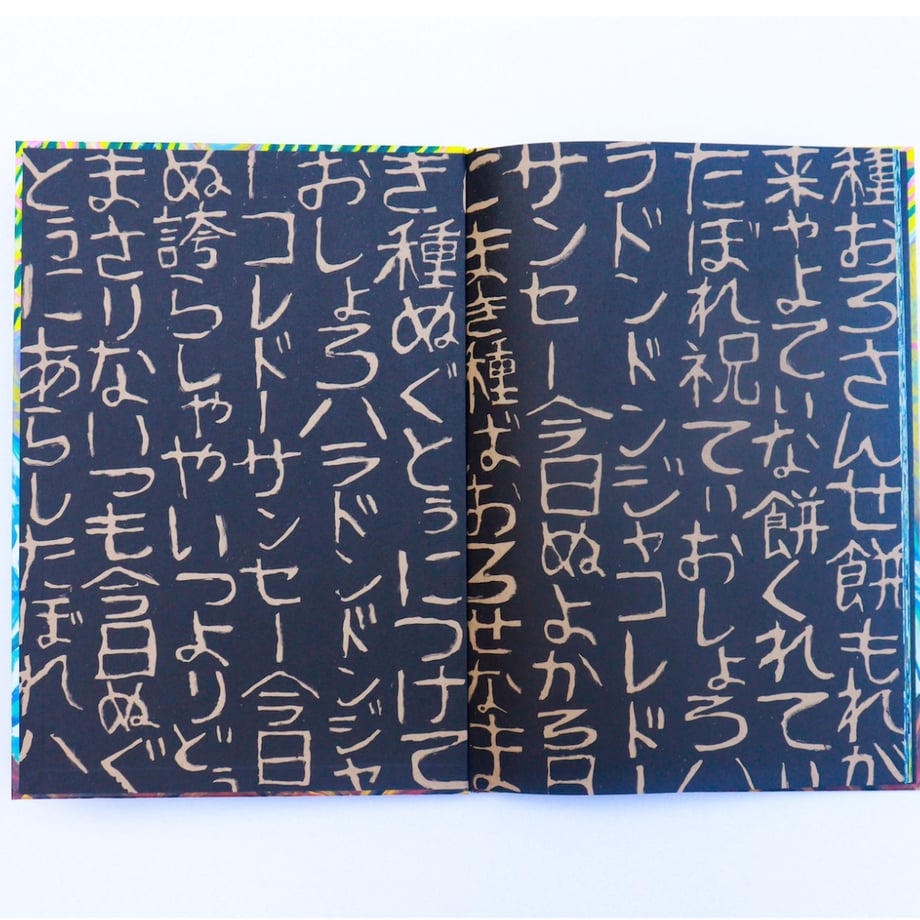 種おろさんせ餅もれが
来ゃよてぃな餅くれてぃ
たぼれ祝てぃおしょろハ
ラドンドンジャコレドー
サンセー今日ぬよかろ日
にまき種ばおろせなま
き種ぬぐとぅにつけて
おしょろハラドンドンジャ
ーコレドーサンセー今日
ぬ誇らしゃやいつよりどぅ
まさりないつも今日ぬぐ
とぅにあらしたぼれハ